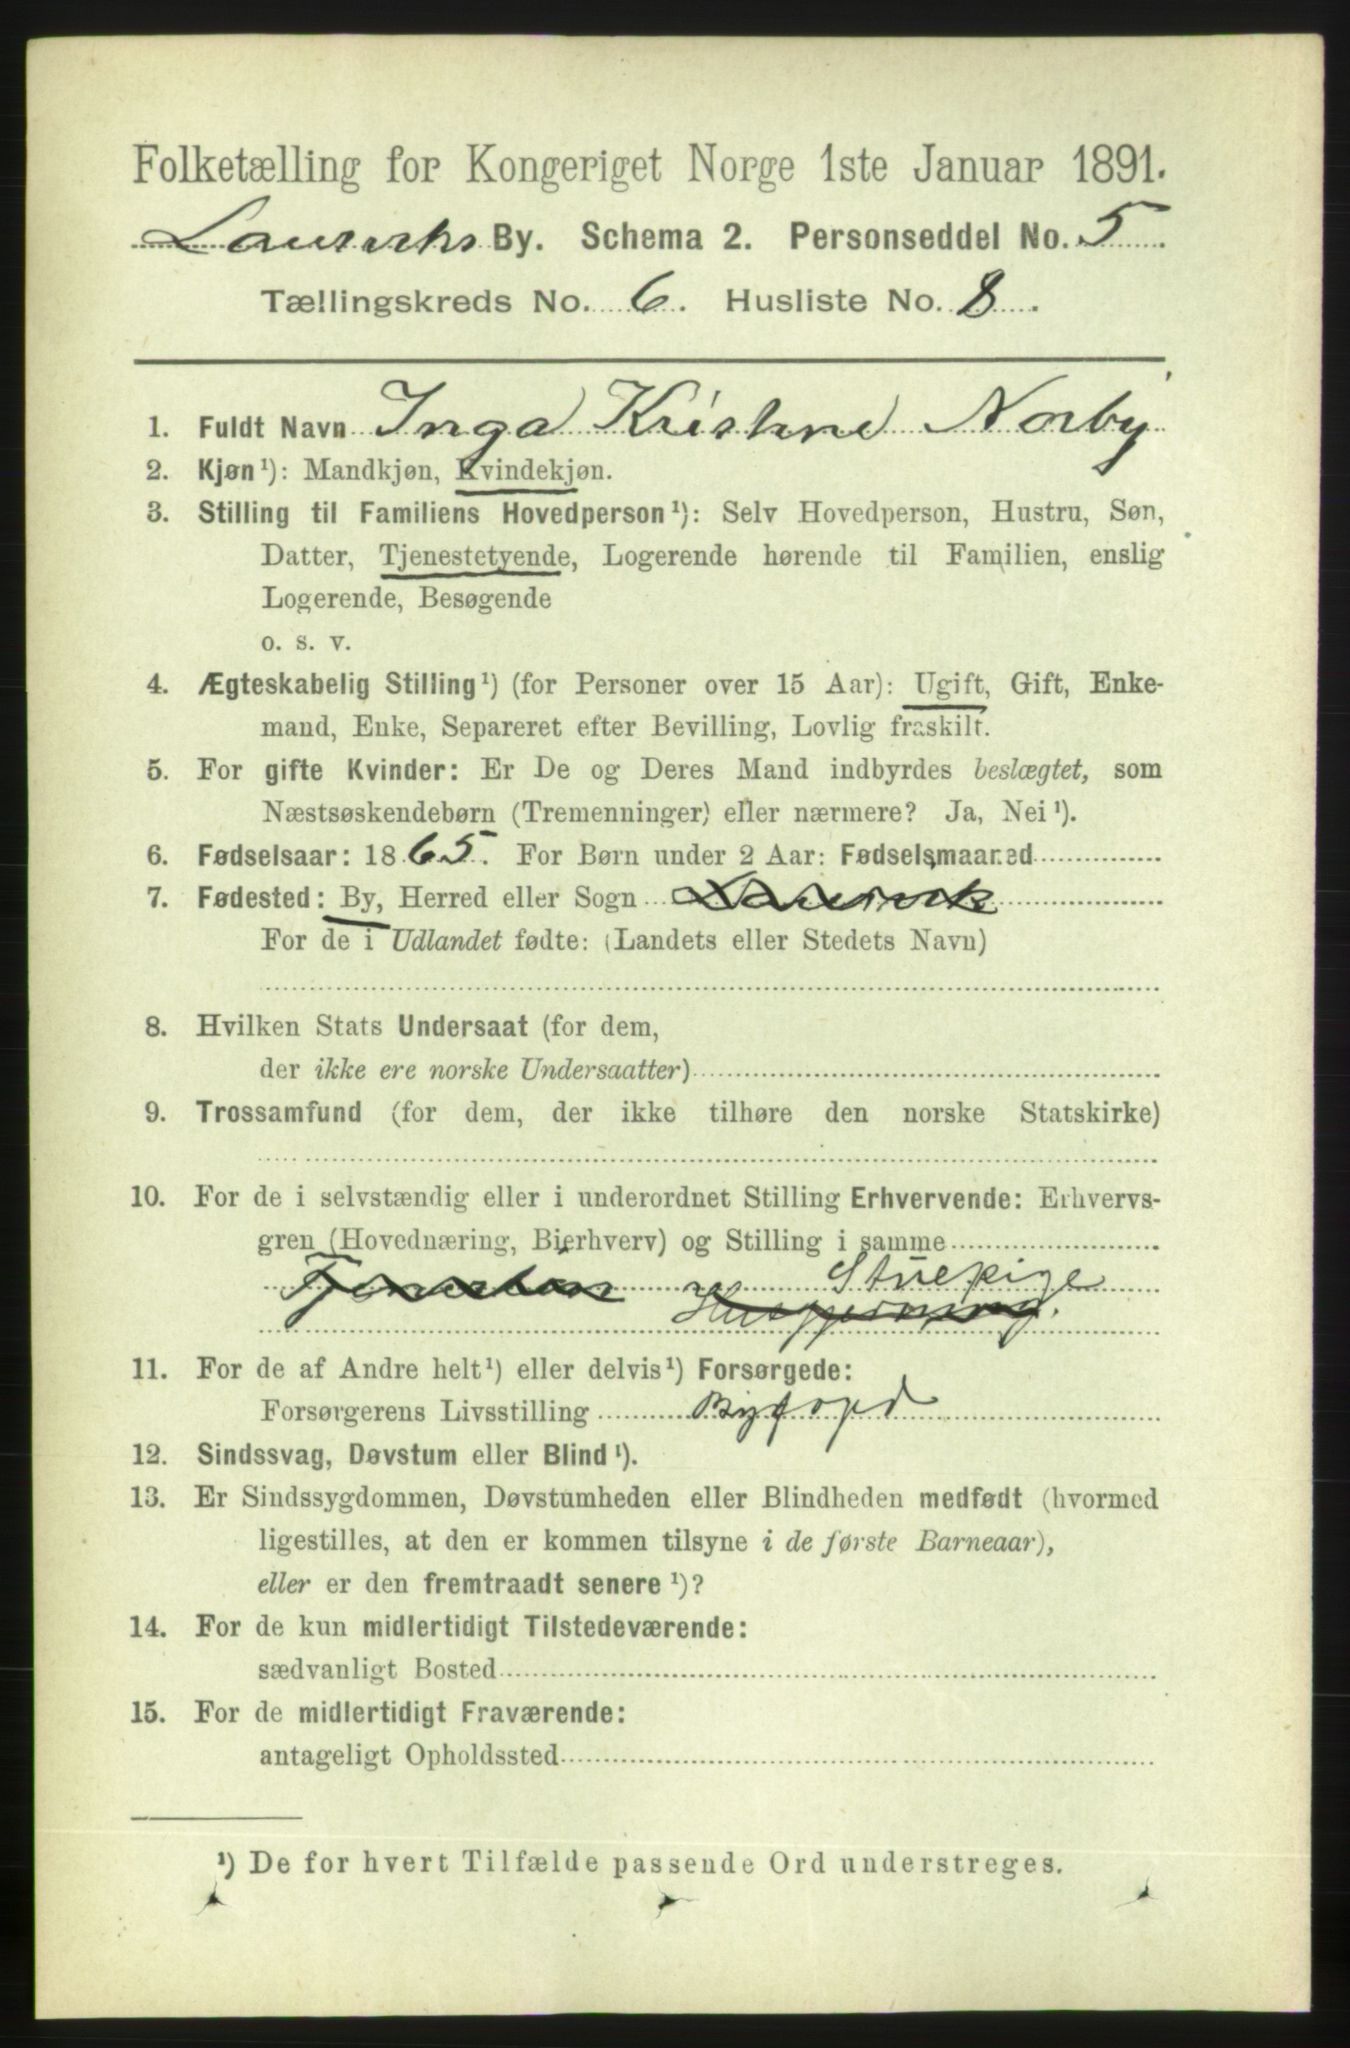 Folketælling for Kongeriget Norge 1ste Januar 1891.
Laurviks By. Schema 2. Personseddel No. 5.
Tællingskreds No. 6. Husliste No. 8.
1. Fuldt Navn Inga Kristine Norby
2. Kjøn¹): Mandkjøn, Kvindekjøn.
3. Stilling til Familiens Hovedperson¹): Selv Hovedperson, Hustru, Søn,
Datter, Tjenestetyende, Logerende hørende til Familien, enslig
Logerende, Besøgende
o. s. v.
4. Ægteskabelig Stilling¹) (for Personer over 15 Aar): Ugift, Gift, Enke-
mand, Enke, Separeret efter Bevilling, Lovlig fraskilt.
5. For gifte Kvinder: Er De og Deres Mand indbyrdes beslægtet, som
Næstsøskendebørn (Tremenninger) eller nærmere? Ja, Nei¹).
6. Fødselsaar: 1865. For Børn under 2 Aar: Fødselsmaaned
7. Fødested: By, Herred eller Sogn Laurvik
For de i Udlandet fødte: (Landets eller Stedets Navn)
8. Hvilken Stats Undersaat (for dem,
der ikke ere norske Undersaatter)
9. Trossamfund (for dem, der ikke tilhøre den norske Statskirke)
10. For de i selvstændig eller i underordnet Stilling Erhvervende: Erhvervs-
gren (Hovednæring, Bierhverv) og Stilling i samme
Stuepige
Husgjerning.
11. For de af Andre helt¹) eller delvis¹) Forsørgede:
Forsørgerens Livsstilling Byfopd
12. Sindssvag, Døvstum eller Blind¹).
13. Er Sindssygdommen, Døvstumheden eller Blindheden medfødt (hvormed
ligestilles, at den er kommen tilsyne i de første Barneaar),
eller er den fremtraadt senere¹)?
14. For de kun midlertidigt Tilstedeværende:
sædvanligt Bosted
15. For de midlertidigt Fraværende:
antageligt Opholdssted
¹) De for hvert Tilfælde passende Ord understreges.